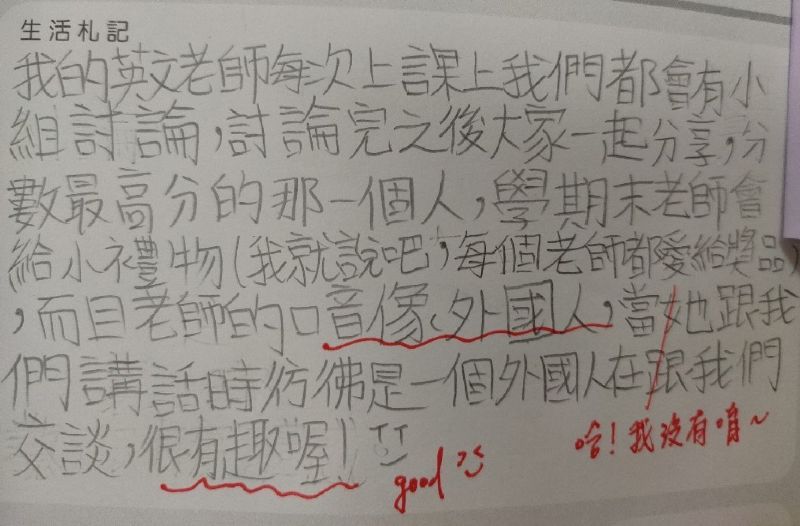 生活札記
我的英文老師每次上課上我們都會有小
組討論，討論完之後大家一起分享，分
數最高分的那一個人，學期末老師會
給小禮物(我就說吧，每個老師都愛給獎品)
，而且老師的口音像外國人，當她跟我
們講話時彷彿是一個外國人在跟我們
交談，很有趣喔!
good
哈!我沒有唷~